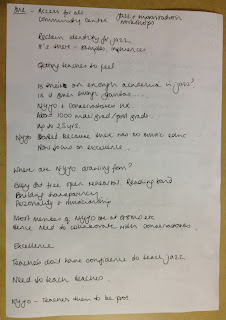 Access for all
Community Centre
Jazz + improvisation workshops
Reclaim identity for jazz
It's there - samples, influences
Getting teachers to feel
Is there enough academia in jazz?
Is it given enough
NYJO + Conservatoires UK
About 1000 undergrad/post grads
up to 25 yrs.
NYJO started because there was no music educ
Now focus on excellence.
Where are NYJO drawing from?
free open rehearsal Reading band
Building transparency
Personality + Musicianship
Most members of NYJO are at
Hence need to collaborate with conservatoires
Excellence
Teachers don't have confidence to teach jazz
Need to teach teachers
NYJO - Teaches them to be pros